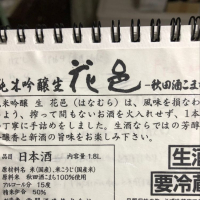 純米吟醸生 花邑 -秋田酒こま
米吟醸 生 花邑（はなむら）は、風味を損なわ
よう、搾って間もないお酒を火入れせず、1本
丁寧に手詰めをしました。生酒ならではの芳醇
醸香と新酒の旨味をお楽しみ下さい。
品目 日本酒 内容量 1.8L
原材料名 米(国産)、米こうじ(国産米)
原料米 秋田酒こまち100%使用
アルコール分 15度
精米歩合 50%
生酒
要冷蔵